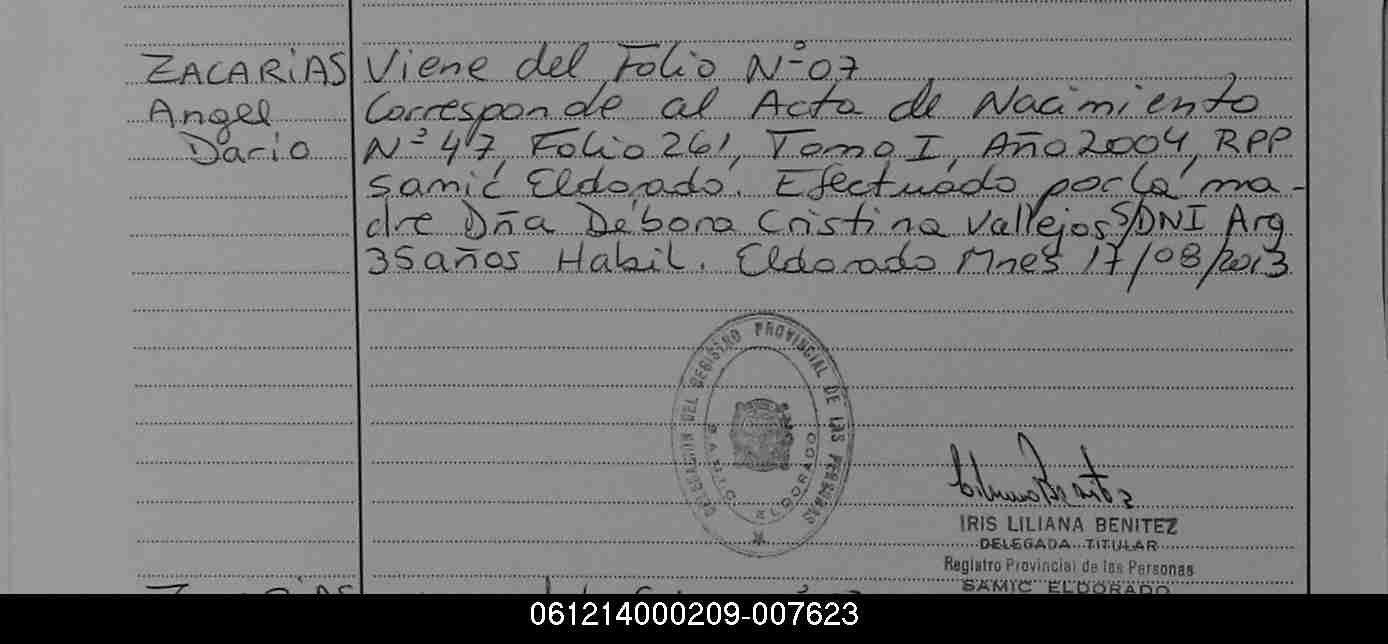 ZACARIAS Viene del Folio Nº 07
Angel Corresponde al Acta de Nacimiento
Dario Nº 47, Folio 261, Tomo I, Año 2004, RPP
Samic Eldorado. Efectuado por la ma-
dre Dña Débora Cristina Vallejos S/DNI Arg
35 años Habil. Eldorado Mnes 17/08/2013
DELEGACION DEL REGISTRO PROVINCIAL DE LAS PERSONAS
SAMIC ELDORADO
IRIS LILIANA BENITEZ
DELEGADA TITULAR
Registro Provincial de las Personas
SAMIC ELDORADO
061214000209-007623